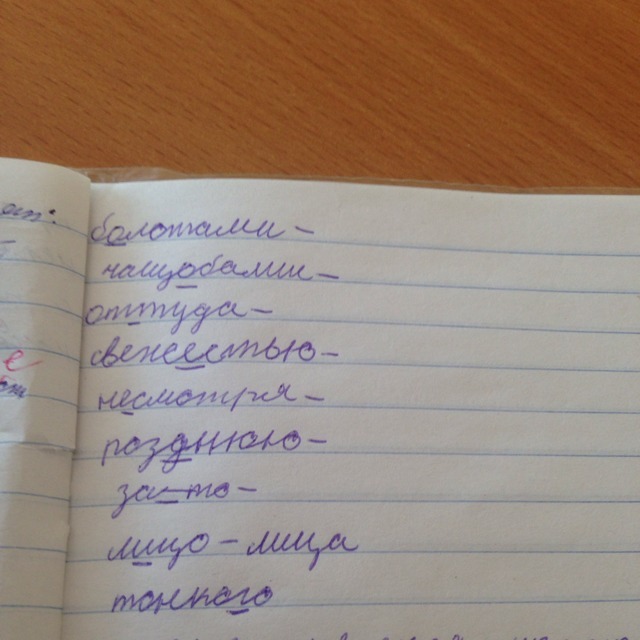 болотами -
чащобами -
оттуда -
свежестью -
несмотря -
позднюю -
за-то -
лицо - лица
тонкого